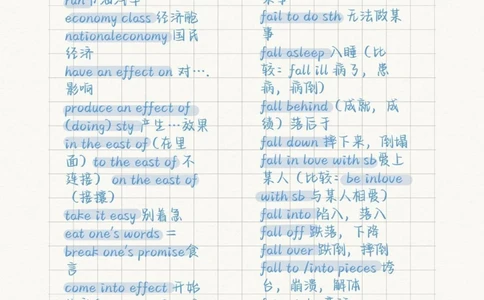 economy class 经济舱
nationaleconomy 国民
经济
have an effect on 对….
影响
produce an effect of
(doing) sty 产生…效果
in the east of (在里
面) to the east of 不
连接) on the east of
(接攘)
take it easy 别着急
eat one's words =
break one's promise食
言
come into effect 开始
fail to do sth 无法做某
事
fall asleep 入睡 (比
较: fall ill 病了, 患
病, 病倒)
fall behind (成就, 成
绩) 落后于
fall down 摔下来, 倒塌
fall in love with sb爱上
某人 (比较: be inlove
with sb 与某人相爱)
fall into 陷入, 落入
fall off 跌落, 下降
fall over 跌倒, 摔倒
fall to /into pieces 垮
台, 崩溃, 解体